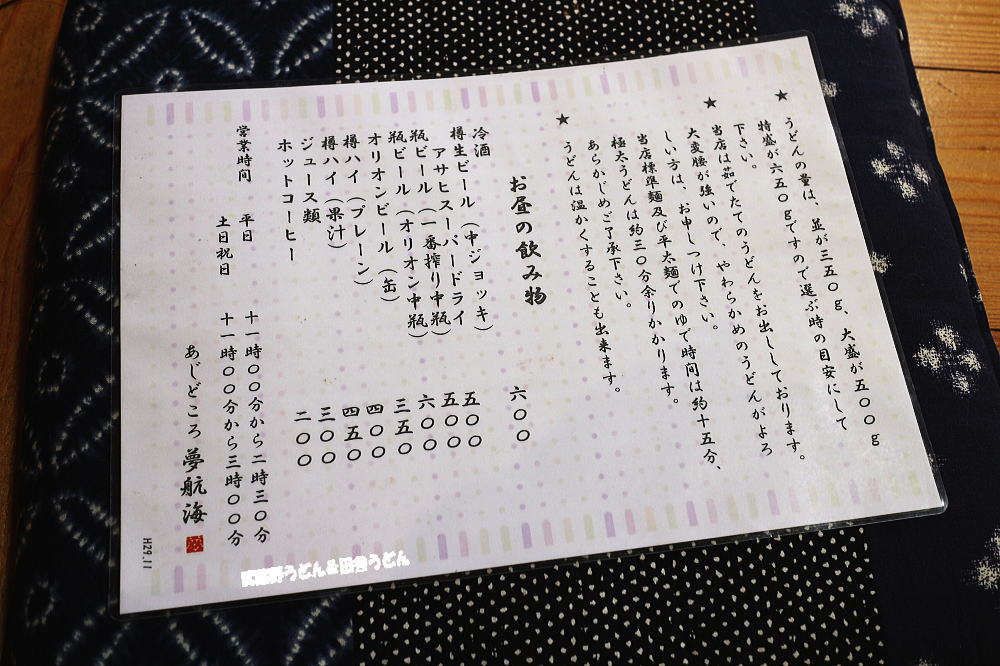 ★ うどんの量は、並が三五〇g、大盛が五〇〇g
特盛が六五〇gですので選ぶ時の目安にして
下さい。
★ 当店は茹でたてのうどんをお出ししております。
大変腰が強いので、やわらかめのうどんがよろ
しい方は、お申しつけ下さい。
当店標準麺及び平太麺でのゆで時間は約十五分、
極太うどんは約三〇分余りかかります。
あらかじめご了承下さい。
★ うどんは温かくすることも出来ます。
お昼の飲み物
冷酒 六〇〇
樽生ビール（中ジョッキ） 五〇〇
アサヒスーパードライ
瓶ビール（一番搾り中瓶） 五〇〇
瓶ビール（オリオン中瓶） 六〇〇
オリオンビール（缶） 三五〇
樽ハイ（プレーン） 四〇〇
樽ハイ（果汁） 四五〇
ジュース類 三〇〇
ホットコーヒー 二〇〇
営業時間 平日 十一時〇〇分から二時三〇分
土日祝日 十一時〇〇分から三時〇〇分
あじどころ 夢航海
H29.11
うどん&田舎うどん